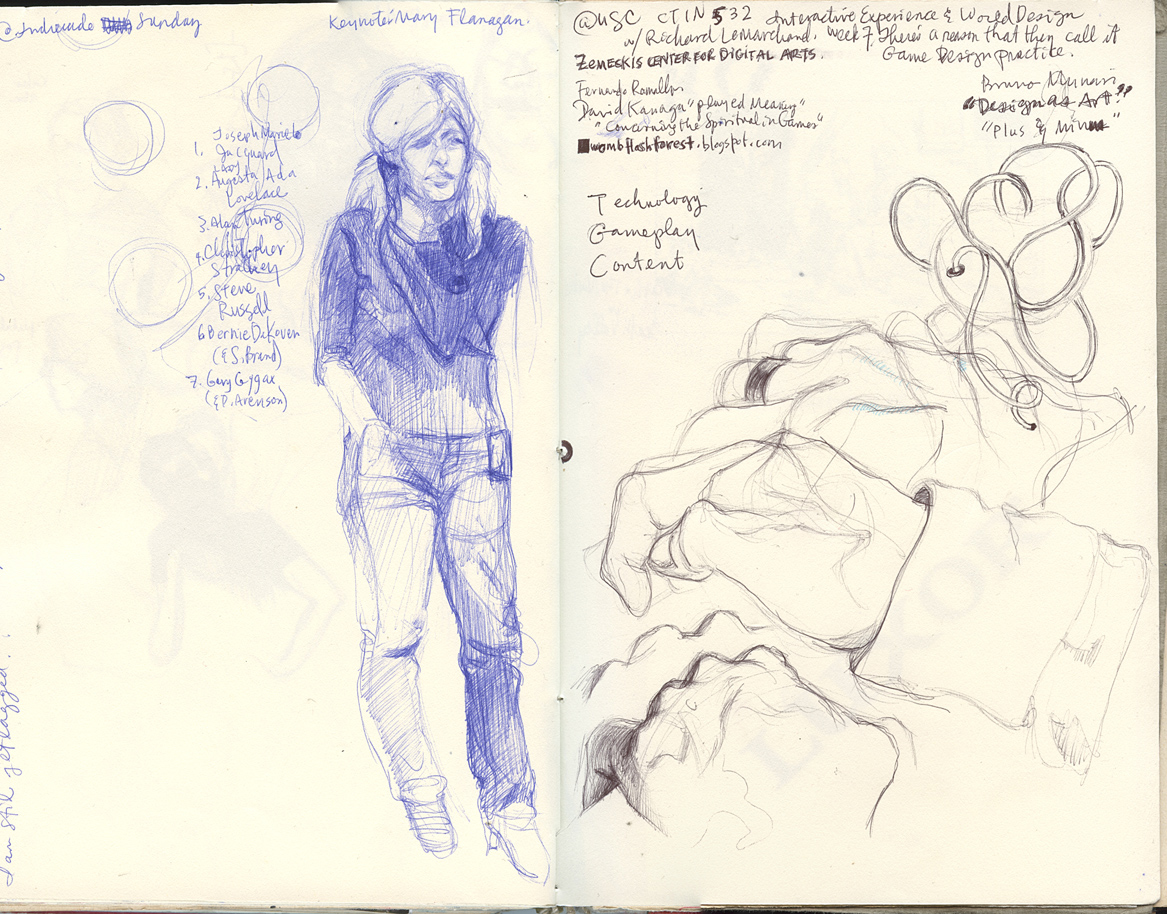 @Indiecade Sunday
Keynote: Mary Flanagan.
Joseph Marie
Jacquard
1.
2. Augusta Ada
Lovelace
3. Alan Turing
4. Christopher
Strachey
5. Steve
Russell
6. Bernie DeKoven
(& S. Brand)
7. Gary Gygax
(& D. Arenson)
I am still jetlagged.
@USC CTIN 532 Interactive Experience & World Design
w/ Richard Lemarchand. Week 7. There's a reason that they call it
Game Design practice.
ZEMECKIS CENTER FOR DIGITAL ARTS.
Fernando Ramallo
David Kanaga "played Meaning"
"Concerning the Spiritual in Games"
wombflashforest.blogspot.com
Bruno Munari
"Design as Art"
"Plus & Minus"
Technology
Gameplay
Content